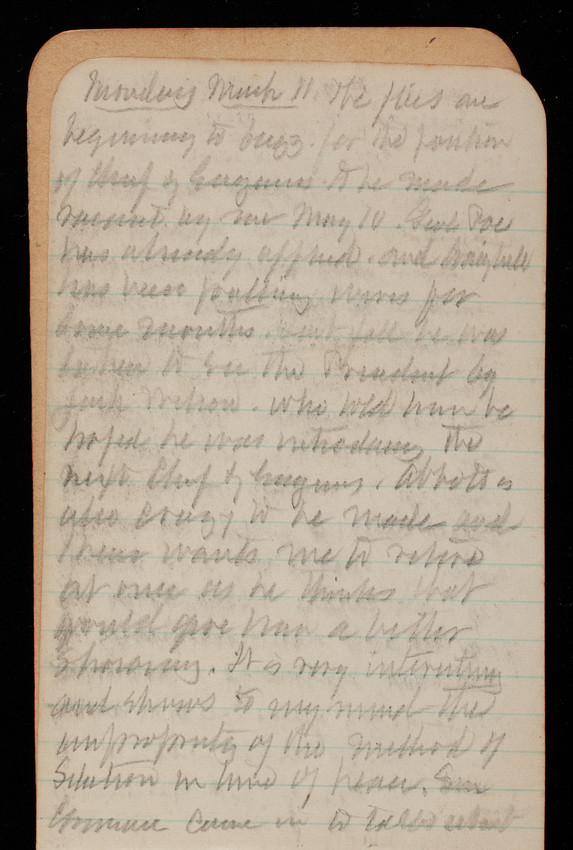 Monday March 11. The flies are
beginning to buzz for the position
of Chief of Engineers to be made
vacant by me May 10. Genl Poe
has already applied. and Craighill
has been pulling wires for
some months. Last fall he was
taken to see the President by
Wilson. who told him he
hoped he was introducing the
next Chief of Engineers. Abbott is
also crazy to be made and
wants me to retire
at once as he thinks that
would give him a better
showing. It is very interesting
and shows to my mind the
impropriety of the method of
Selection in time of peace. Genl
came in to talk about